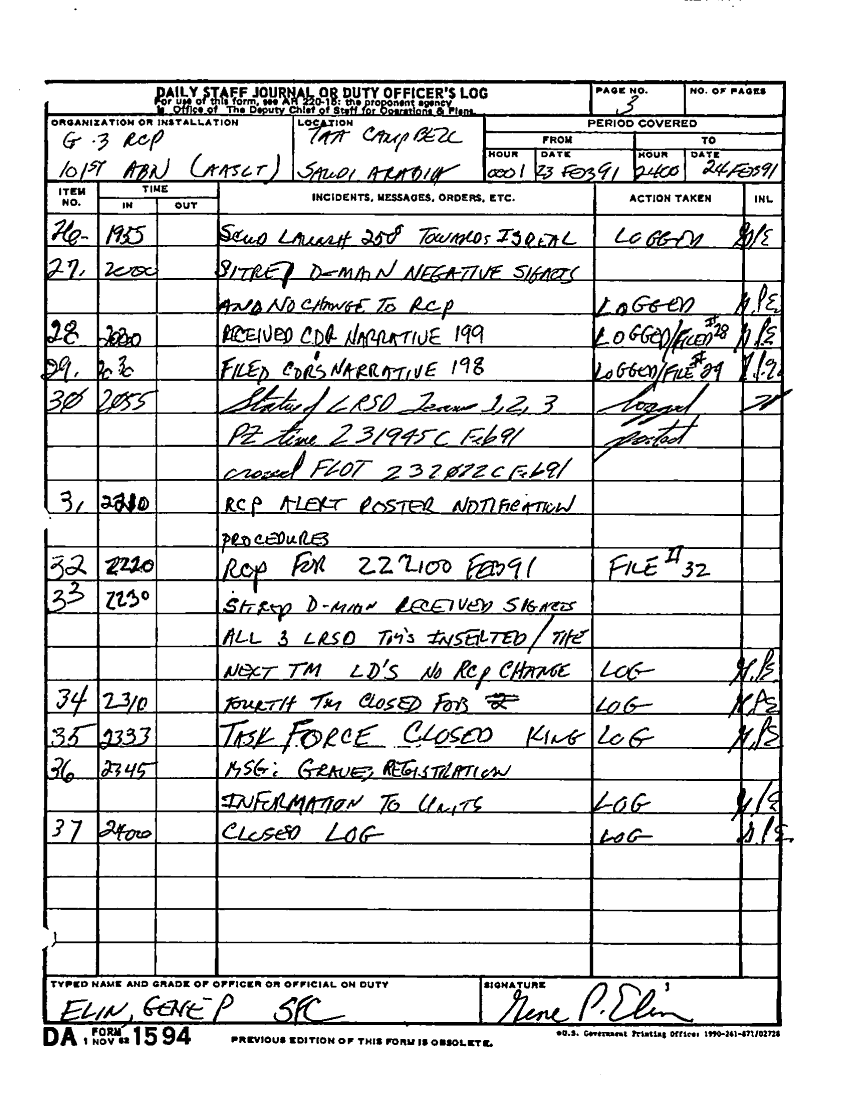 DAILY STAFF JOURNAL OR DUTY OFFICER'S LOG
For use of this form, see AR 220-15; the proponent agency
is Office of The Deputy Chief of Staff for Operations & Plans.
PAGE NO.
3
NO. OF PAGES
ORGANIZATION OR INSTALLATION
G-3 RCP
101ST ABN (AASLT)
LOCATION
TAA CAMPBELL
SAUDI ARABIA
PERIOD COVERED
FROM
TO
HOUR
0001
DATE
23 FEB91
HOUR
2400
DATE
24 FEB91
ITEM NO.
TIME
IN
OUT
INCIDENTS, MESSAGES, ORDERS, ETC.
ACTION TAKEN
INL
26- 1955 SCUD LAUNSH 258° TOWARDS ISREAL LOGGED
27. 2000 SITREP D-MAIN NEGATIVE SIGACTS
AND NO CHANGE TO RCP LOGGED
28 RECEIVED CDR NARRATIVE 199 LOGGED/FILED #28
29. 2030 FILED CDR'S NARRATIVE 198 LOGGED/FILE #29
30 2055 Status of LRSD Teams 1, 2, 3 logged
PZ time 231945C Feb91 posted
crossed FLOT 232022C Feb91
31 RCP ALERT ROSTER NOTIFICATION
PROCEDURES
32 2220 RCP FOR 222100 FEB91 FILE # 32
33 2230 SITREP D-MAIN RECEIVED SIGACTS
ALL 3 LRSD TM'S INSERTED / THE
NEXT TM LD'S NO RCP CHANGE LOG
34 2310 FOURTH TM CLOSED FOB LOG
35 2333 TASK FORCE CLOSED KING LOG
36 2345 MSG: GRAVES REGISTRATION
INFORMATION TO UNITS LOG
37 2400 CLOSED LOG LOG
TYPED NAME AND GRADE OF OFFICER OR OFFICIAL ON DUTY
ELIN, GENE P SFC
SIGNATURE
Gene P. Elin
DA FORM 1 NOV 62 1594
PREVIOUS EDITION OF THIS FORM IS OBSOLETE.
*U.S. Government Printing Office: 1990-261-871/02728